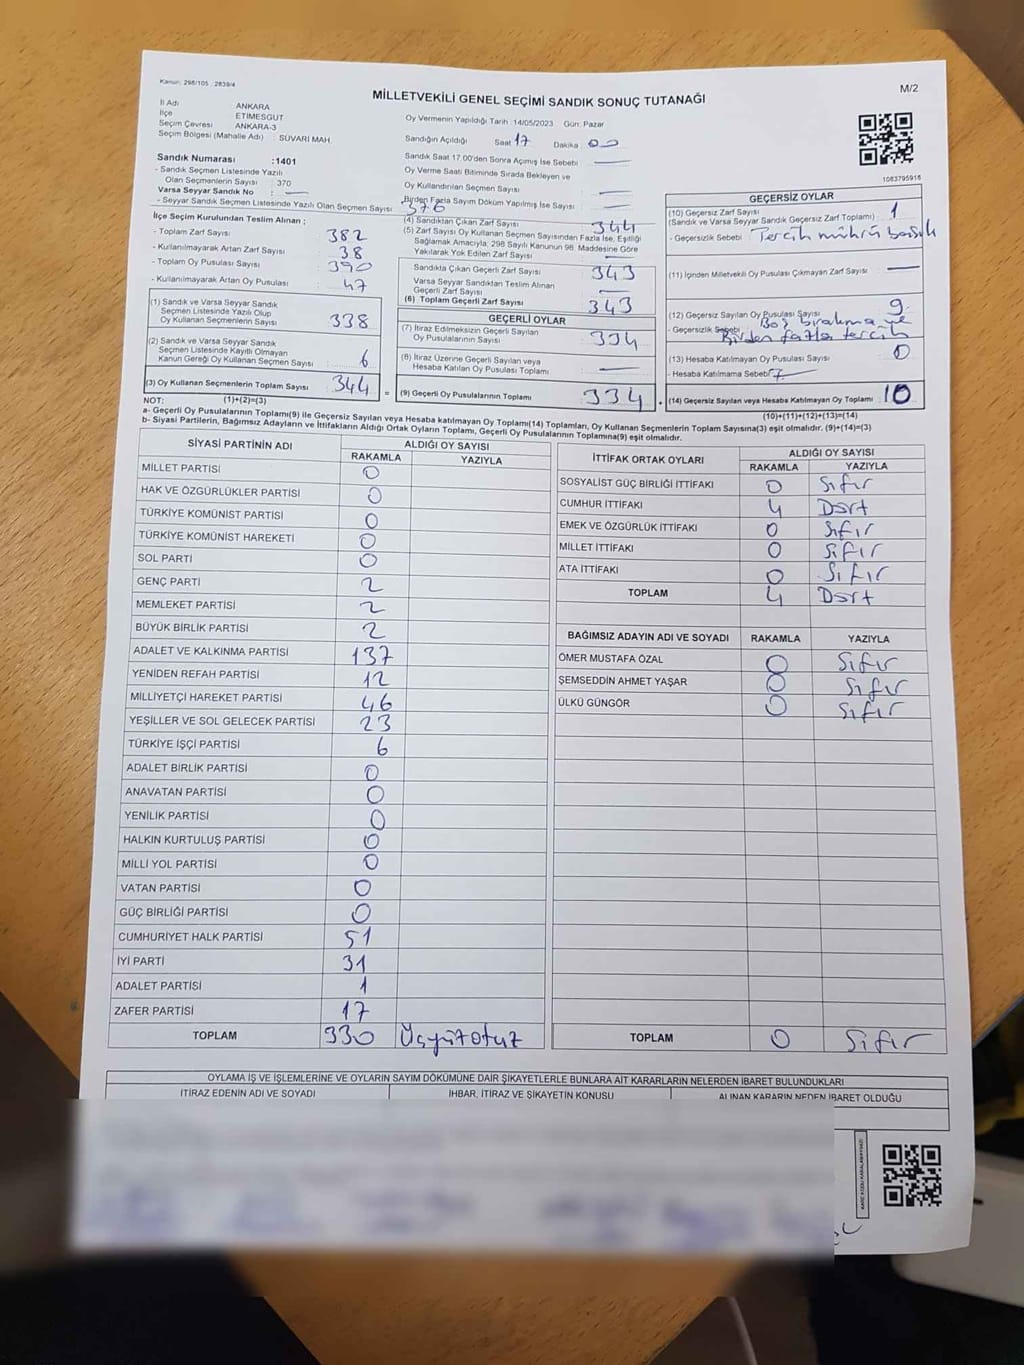 Kanun: 298/105 , 2839/4
M/2
MİLLETVEKİLİ GENEL SEÇİMİ SANDIK SONUÇ TUTANAĞI
İl Adı : ANKARA
İlçe : ETİMESGUT
Seçim Çevresi : ANKARA-3
Seçim Bölgesi (Mahalle Adı) : SÜVARİ MAH.
Oy Vermenin Yapıldığı Tarih :14/05/2023 Gün: Pazar
Sandığın Açıldığı Saat 17 Dakika 00
Sandık Saat 17.00'den Sonra Açımış İse Sebebi
Oy Verme Saati Bitiminde Sırada Bekleyen ve
Oy Kullandırılan Seçmen Sayısı
Birden Fazla Sayım Döküm Yapılmış İse Sayısı :
Sandık Numarası :1401
- Sandık Seçmen Listesinde Yazılı
Olan Seçmenlerin Sayısı : 370
Varsa Seyyar Sandık No :
- Seyyar Sandık Seçmen Listesinde Yazılı Olan Seçmen Sayısı 376
1083795916
İlçe Seçim Kurulundan Teslim Alınan ;
- Toplam Zarf Sayısı : 382
- Kullanılmayarak Artan Zarf Sayısı : 38
- Toplam Oy Pusulası Sayısı : 390
- Kullanılmayarak Artan Oy Pusulası : 47
(1) Sandık ve Varsa Seyyar Sandık
Seçmen Listesinde Yazılı Olup
Oy Kullanan Seçmenlerin Sayısı : 338
(2) Sandık ve Varsa Seyyar Sandık
Seçmen Listesinde Kayıtlı Olmayan
Kanun Gereği Oy Kullanan Seçmen Sayısı : 6
(3) Oy Kullanan Seçmenlerin Toplam Sayısı : 344
(4) Sandıktan Çıkan Zarf Sayısı : 344
(5) Zarf Sayısı Oy Kullanan Seçmen Sayısından Fazla İse, Eşitliği
Sağlamak Amacıyla, 298 Sayılı Kanunun 98. Maddesine Göre
Yakılarak Yok Edilen Zarf Sayısı :
Sandıkta Çıkan Geçerli Zarf Sayısı : 343
Varsa Seyyar Sandıktan Teslim Alınan
Geçerli Zarf Sayısı
(6) Toplam Geçerli Zarf Sayısı : 343
GEÇERLİ OYLAR
(7) İtiraz Edilmeksizin Geçerli Sayılan
Oy Pusulasının Sayısı : 334
(8) İtiraz Üzerine Geçerli Sayılan veya
Hesaba Katılan Oy Pusulası Toplamı :
(9) Geçerli Oy Pusulalarının Toplamı : 334
GEÇERSİZ OYLAR
(10) Geçersiz Zarf Sayısı
(Sandık ve Varsa Seyyar Sandık Geçersiz Zarf Toplamı) : 1
- Geçersizlik Sebebi : Tercih mührü basılı
(11) İçinden Milletvekili Oy Pusulası Çıkmayan Zarf Sayısı :
(12) Geçersiz Sayılan Oy Pusulası Sayısı : 9
- Geçersizlik Sebebi : Boş bırakma ve
Birden fazla tercih
(13) Hesaba Katılmayan Oy Pusulası Sayısı : 0
- Hesaba Katılmama Sebebi
(14) Geçersiz Sayılan veya Hesaba Katılmayan Oy Toplamı : 10
NOT: (1)+(2)=(3)
(10)+(11)+(12)+(13)=(14)
a- Geçerli Oy Pusulalarının Toplamı(9) ile Geçersiz Sayılan veya Hesaba katılmayan Oy Toplamı(14) Toplamları, Oy Kullanan Seçmenlerin Toplam Sayısına(3) eşit olmalıdır. (9)+(14)=(3)
b- Siyasi Partilerin, Bağımsız Adayların ve İttifakların Aldığı Ortak Oyların Toplamı, Geçerli Oy Pusulalarının Toplamına(9) eşit olmalıdır.
SİYASİ PARTİNİN ADI ALDIĞI OY SAYISI
RAKAMLA YAZIYLA
MİLLET PARTİSİ 0
HAK VE ÖZGÜRLÜKLER PARTİSİ 0
TÜRKİYE KOMÜNİST PARTİSİ 0
TÜRKİYE KOMÜNİST HAREKETİ 0
SOL PARTİ 0
GENÇ PARTİ 2
MEMLEKET PARTİSİ 2
BÜYÜK BİRLİK PARTİSİ 2
ADALET VE KALKINMA PARTİSİ 137
YENİDEN REFAH PARTİSİ 12
MİLLİYETÇİ HAREKET PARTİSİ 46
YEŞİLLER VE SOL GELECEK PARTİSİ 23
TÜRKİYE İŞÇİ PARTİSİ 6
ADALET BİRLİK PARTİSİ 0
ANAVATAN PARTİSİ 0
YENİLİK PARTİSİ 0
HALKIN KURTULUŞ PARTİSİ 0
MİLLİ YOL PARTİSİ 0
VATAN PARTİSİ 0
GÜÇ BİRLİĞİ PARTİSİ 0
CUMHURİYET HALK PARTİSİ 51
İYİ PARTİ 31
ADALET PARTİSİ 1
ZAFER PARTİSİ 17
TOPLAM 330 Üçyüzotuz
İTTİFAK ORTAK OYLARI ALDIĞI OY SAYISI
RAKAMLA YAZIYLA
SOSYALİST GÜÇ BİRLİĞİ İTTİFAKI 0 Sıfır
CUMHUR İTTİFAKI 4 Dört
EMEK VE ÖZGÜRLÜK İTTİFAKI 0 Sıfır
MİLLET İTTİFAKI 0 Sıfır
ATA İTTİFAKI 0 Sıfır
TOPLAM 4 Dört
BAĞIMSIZ ADAYIN ADI VE SOYADI RAKAMLA YAZIYLA
ÖMER MUSTAFA ÖZAL 0 Sıfır
ŞEMSEDDİN AHMET YAŞAR 0 Sıfır
ÜLKÜ GÜNGÖR 0 Sıfır
TOPLAM 0 Sıfır
OYLAMA İŞ VE İŞLEMLERİNE VE OYLARIN SAYIM DÖKÜMÜNE DAİR ŞİKAYETLERLE BUNLARA AİT KARARLARIN NELERDEN İBARET BULUNDUKLARI
İTİRAZ EDENİN ADI VE SOYADI İHBAR, İTİRAZ VE ŞİKAYETİN KONUSU ALINAN KARARIN NEDEN İBARET OLDUĞU